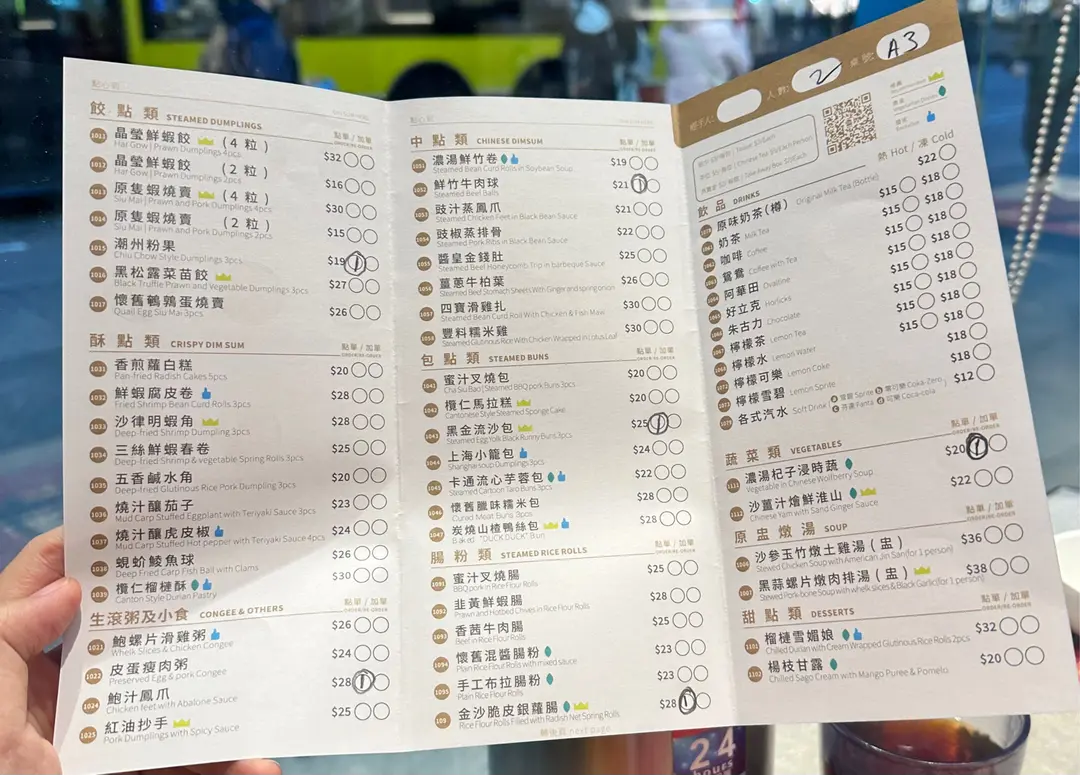 點心到
餃點類 STEAMED DUMPLINGS
點單 / 加單
1011 晶瑩鮮蝦餃 (4粒)
Har Gow | Prawn Dumplings 4pcs
$32
1012 晶瑩鮮蝦餃 (2粒)
Har Gow | Prawn Dumplings 2pcs
$16
1013 原隻蝦燒賣 (4粒)
Siu Mai | Prawn and Pork Dumplings 4pcs
$30
1014 原隻蝦燒賣 (2粒)
Siu Mai | Prawn and Pork Dumplings 2pcs
$15
1015 潮州粉果
Chiu Chow Style Dumplings 3pcs
$19 1
1016 黑松露菜苗餃
Black Truffle Prawn and Vegetable Dumplings 3pcs
$27
1017 懷舊鵪鶉蛋燒賣
Quail Egg Siu Mai 3pcs
$26
酥點類 CRISPY DIM SUM
點單 / 加單
ORDER/RE-ORDER
1031 香煎蘿白糕
Pan-fried Radish Cakes 5pcs
$20
1032 鮮蝦腐皮卷
Fried Shrimp Bean Curd Rolls 3pcs
$28
1033 沙律明蝦角
Deep-fried Shrimp Dumpling 3pcs
$28
1034 三絲鮮蝦春卷
Deep-fried Shrimp & vegetable Spring Rolls 3pcs
$25
1035 五香鹹水角
Deep-fried Glutinous Rice Pork Dumpling 3pcs
$20
1036 燒汁釀茄子
Mud Carp Stuffed Eggplant with Teriyaki Sauce 3pcs
$23
1037 燒汁釀虎皮椒
Mud Carp Stuffed Hot pepper with Teriyaki Sauce 4pcs
$24
1038 蜆蚧鯪魚球
Deep Fried Carp Fish Ball with Clams
$26
1039 欖仁榴槤酥
Canton Style Durian Pastry
$30
生滾粥及小食 CONGEE & OTHERS
點單 / 加單
ORDER/RE-ORDER
1021 鮑螺片滑雞粥
Whelk Slices & Chicken Congee
$26
1022 皮蛋瘦肉粥
Preserved Egg & pork Congee
$24
1024 鮑汁鳳爪
Chicken feet with Abalone Sauce
$28 1
1025 紅油抄手
Pork Dumplings with Spicy Sauce
$25
中點類 CHINESE DIMSUM
點單 / 加單
1051 濃湯鮮竹卷
Steamed Bean Curd Rolls in Soybean Soup
$19
1052 鮮竹牛肉球
Steamed Beef Balls
$21 1
1053 豉汁蒸鳳爪
Steamed Chicken Feet in Black Bean Sauce
$21
1054 豉椒蒸排骨
Steamed Pork Ribs in Black Bean Sauce
$22
1055 醬皇金錢肚
Steamed Beef Honeycomb Trip in barbeque Sauce
$25
1056 薑蔥牛柏葉
Steamed Beef Stomach Sheets With Ginger and spring onion
$26
1057 四寶滑雞扎
Steamed Bean Curd Roll With Chicken & Fish Maw
$30
1058 豐料糯米雞
Steamed Glutinous Rice With Chicken Wrapped in Lotus Leaf
$30
包點類 STEAMED BUNS
點單 / 加單
ORDER/RE-ORDER
1041 蜜汁叉燒包
Cha Siu Bao | Steamed BBQ pork Buns 3pcs
$20
1042 欖仁馬拉糕
Cantonese Style Steamed Sponge Cake
$20
1043 黑金流沙包
Steamed Egg Yolk Black Runny Buns 3pcs
$25 1
1044 上海小籠包
Shanghai soup Dumplings 3pcs
$24
1045 卡通流心芋蓉包
Steamed Cartoon Taro Buns 3pcs
$22
1046 懷舊臘味糯米包
Cured Meat Buns 3pcs
$28
1047 炭燒山楂鴨絲包
Baked "DUCK DUCK" Bun
$28
腸粉類 STEAMED RICE ROLLS
點單 / 加單
ORDER/RE-ORDER
1091 蜜汁叉燒腸
BBQ pork in Rice Flour Rolls
$25
1092 韭黃鮮蝦腸
Prawn and Hotbed Chives in Rice Flour Rolls
$28
1093 香茜牛肉腸
Beef in Rice Flour Rolls
$25
1094 懷舊混醬腸粉
Plain Rice Flour Rolls with mixed sauce
$23
1095 手工布拉腸粉
Plain Rice Flour Rolls
$23
金沙脆皮銀蘿腸
Rice Flour Rolls Filled with Radish Net Spring Rolls
$28 1
轉後頁 next page
經手人:
人數: 2
桌號: A3
飲品 DRINKS
熱 Hot / 凍 Cold
原味奶茶(樽) Original Milk Tea (Bottle)
$22
奶茶 Milk Tea
$15 $18
咖啡 Coffee
$15 $18
鴛鴦 Coffee with Tea
$15 $18
阿華田 Ovaltine
$15 $18
好立克 Horlicks
$15 $18
朱古力 Chocolate
$15 $18
檸檬茶 Lemon Tea
$15 $18
檸檬水 Lemon Water
$15 $18
檸檬可樂 Lemon Coke
$18
檸檬雪碧 Lemon Sprite
$18
各式汽水 Soft Drink
$12
蔬菜類 VEGETABLES
點單 / 加單
ORDER/RE-ORDER
1111 濃湯杞子浸時蔬
Vegetable in Chinese Wolfberry Soup
$20 1
1112 沙薑汁燴鮮淮山
Chinese Yam with Sand Ginger Sauce
$22
原盅燉湯 SOUP
點單 / 加單
ORDER/RE-ORDER
沙參玉竹燉土雞湯(盅)
Stewed Chicken Soup with American Jin San (for 1 person)
$36
黑蒜螺片燉肉排湯(盅)
Stewed Pork-bone Soup with whelk slices & Black Garlic (for 1 person)
$38
甜點類 DESSERTS
點單 / 加單
ORDER/RE-ORDER
1101 榴槤雪媚娘
Chilled Durian with Cream Wrapped Glutinous Rice Rolls 2pcs
$32
1102 楊枝甘露
Chilled Sago Cream with Mango Puree & Pomelo
$20
24
hours